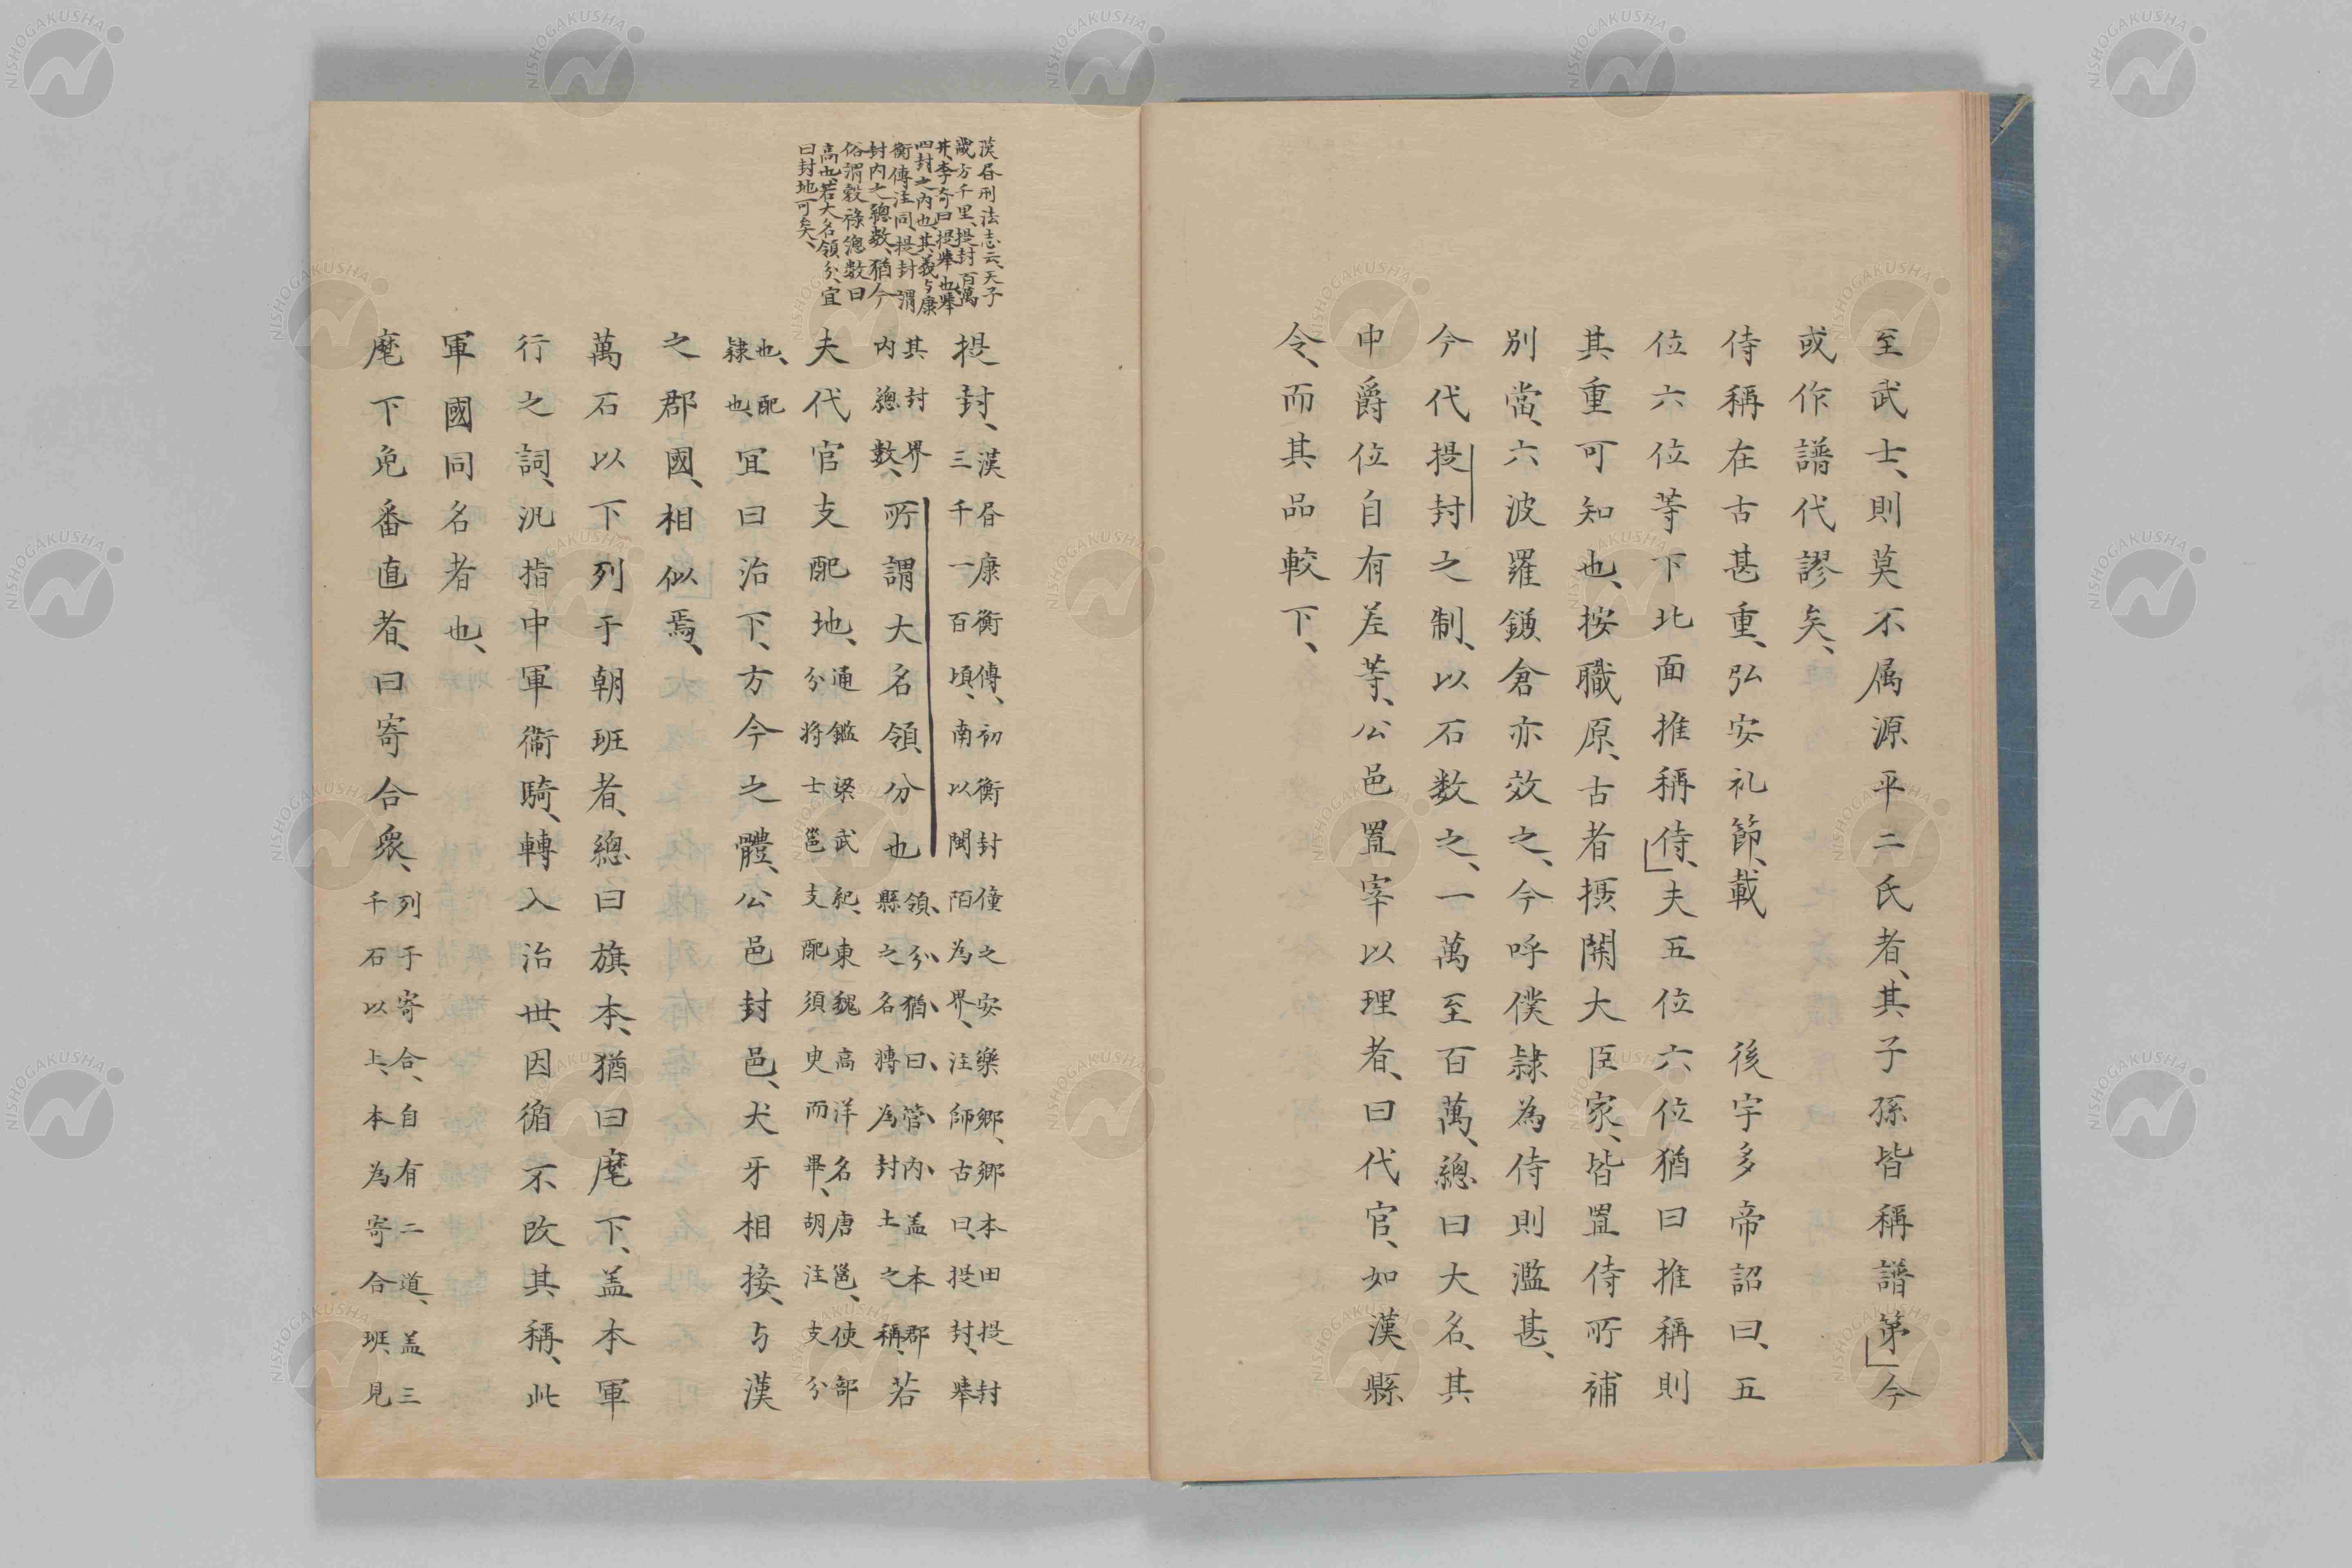 至武士、則莫不属源平二氏者、其子孫皆稱譜第」今
或作譜代謬矣、
侍稱在古甚重、弘安礼節、載　後宇多帝詔曰、五
位六位等下北面推稱侍、」夫五位六位猶曰推稱則
其重可知也、按職原、古者摂関大臣家、皆置侍所補
別當、六波羅鎌倉亦效之、今呼僕隷為侍則濫甚、
今代提封之制、以石数之、一萬至百萬、總曰大名、其
中爵位自有差等、公邑置宰以理者、曰代官、如漢縣
令、而其品較下、
漢書刑法志云、天子
畿方千里、提封百萬
井、李奇曰、提舉也、舉
四封之内也、其義与康
衡傳注同、提封謂
封内之總数、猶今
俗謂穀祿總数曰
高也、若大名領分、宜
曰封地可矣、
提封、漢書康衡傳、初衡封僮之安樂郷、郷本田提封
三千一百頃、南以閩陌為界、注師古曰、提封、舉
其封界
内總數、所謂大名領分也領、分、猶、曰、管、内、盖本郡
縣之名轉為封土之稱、若
夫代官支配地、通鑑梁武紀、東魏高洋名唐邕、使部
分将士邕支配須臾而畢、胡注支分
也、配
隷也、宜曰治下、方今之體、公邑封邑、犬牙相接、与漢
之郡國、相似焉、
萬石以下列于朝班者、總曰旗本、猶曰麾下、盖本軍
行之詞、汎指中軍衞騎、轉入治世、因循不改其稱、此
軍國同名者也、
麾下免番直者、曰寄合衆、列于寄合、自有二道、盖三
千石以上、本為寄合班、見